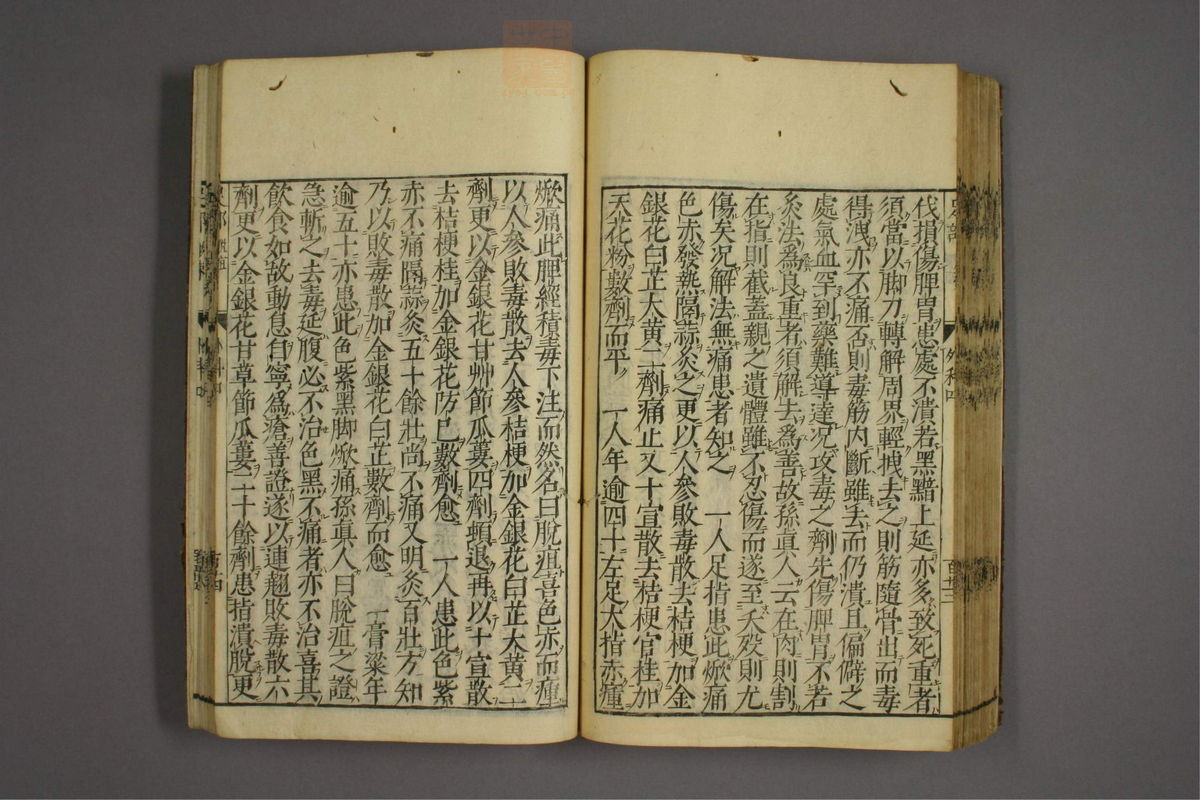 伐損傷脾胃患處不潰若黑黯上延亦多致死重者
須當以脚刀轉解周界輕拽去之則筋隨骨出而毒
得洩亦不痛否則毒筋内斷雖去而仍潰且偏僻之
處氣血罕到藥難導達况攻毒之劑先傷脾胃不若
灸法爲良重者須解去爲善故孫眞人云在肉則割
在指則截蓋親之遺體雖不忍傷而遂至夭殁則尤
傷矣况解法無痛患者知之 一人足指患此焮痛
色赤發熱隔蒜灸之更以人參敗毒散去桔梗加金
銀花白芷大黄二劑痛止又十宣散去桔梗官桂加
天花粉數劑而平 一人年逾四十左足大指赤腫
焮痛此脾經積毒下注而然名曰脫疽喜色赤而腫
以人參敗毒散去人參桔梗加金銀花白芷大黄二
劑更以金銀花甘艸節瓜蔞四劑頓退再以十宣散
去桔梗桂加金銀花防已數劑愈 一人患此色紫
赤不痛隔蒜灸五十餘壯尚不痛又明灸百壯方知
乃以敗毒散加金銀花白芷數劑而愈 一膏粱年
逾五十亦患此色紫黑脚焮痛孫眞人曰脫疽之證
急斬之去毒延腹必不治色黑不痛者亦不治喜其
飲食如故動息自寧爲瘡善證遂以連翹敗毒散六
劑更以金銀花甘草節瓜蔞二十餘劑患指潰脫更